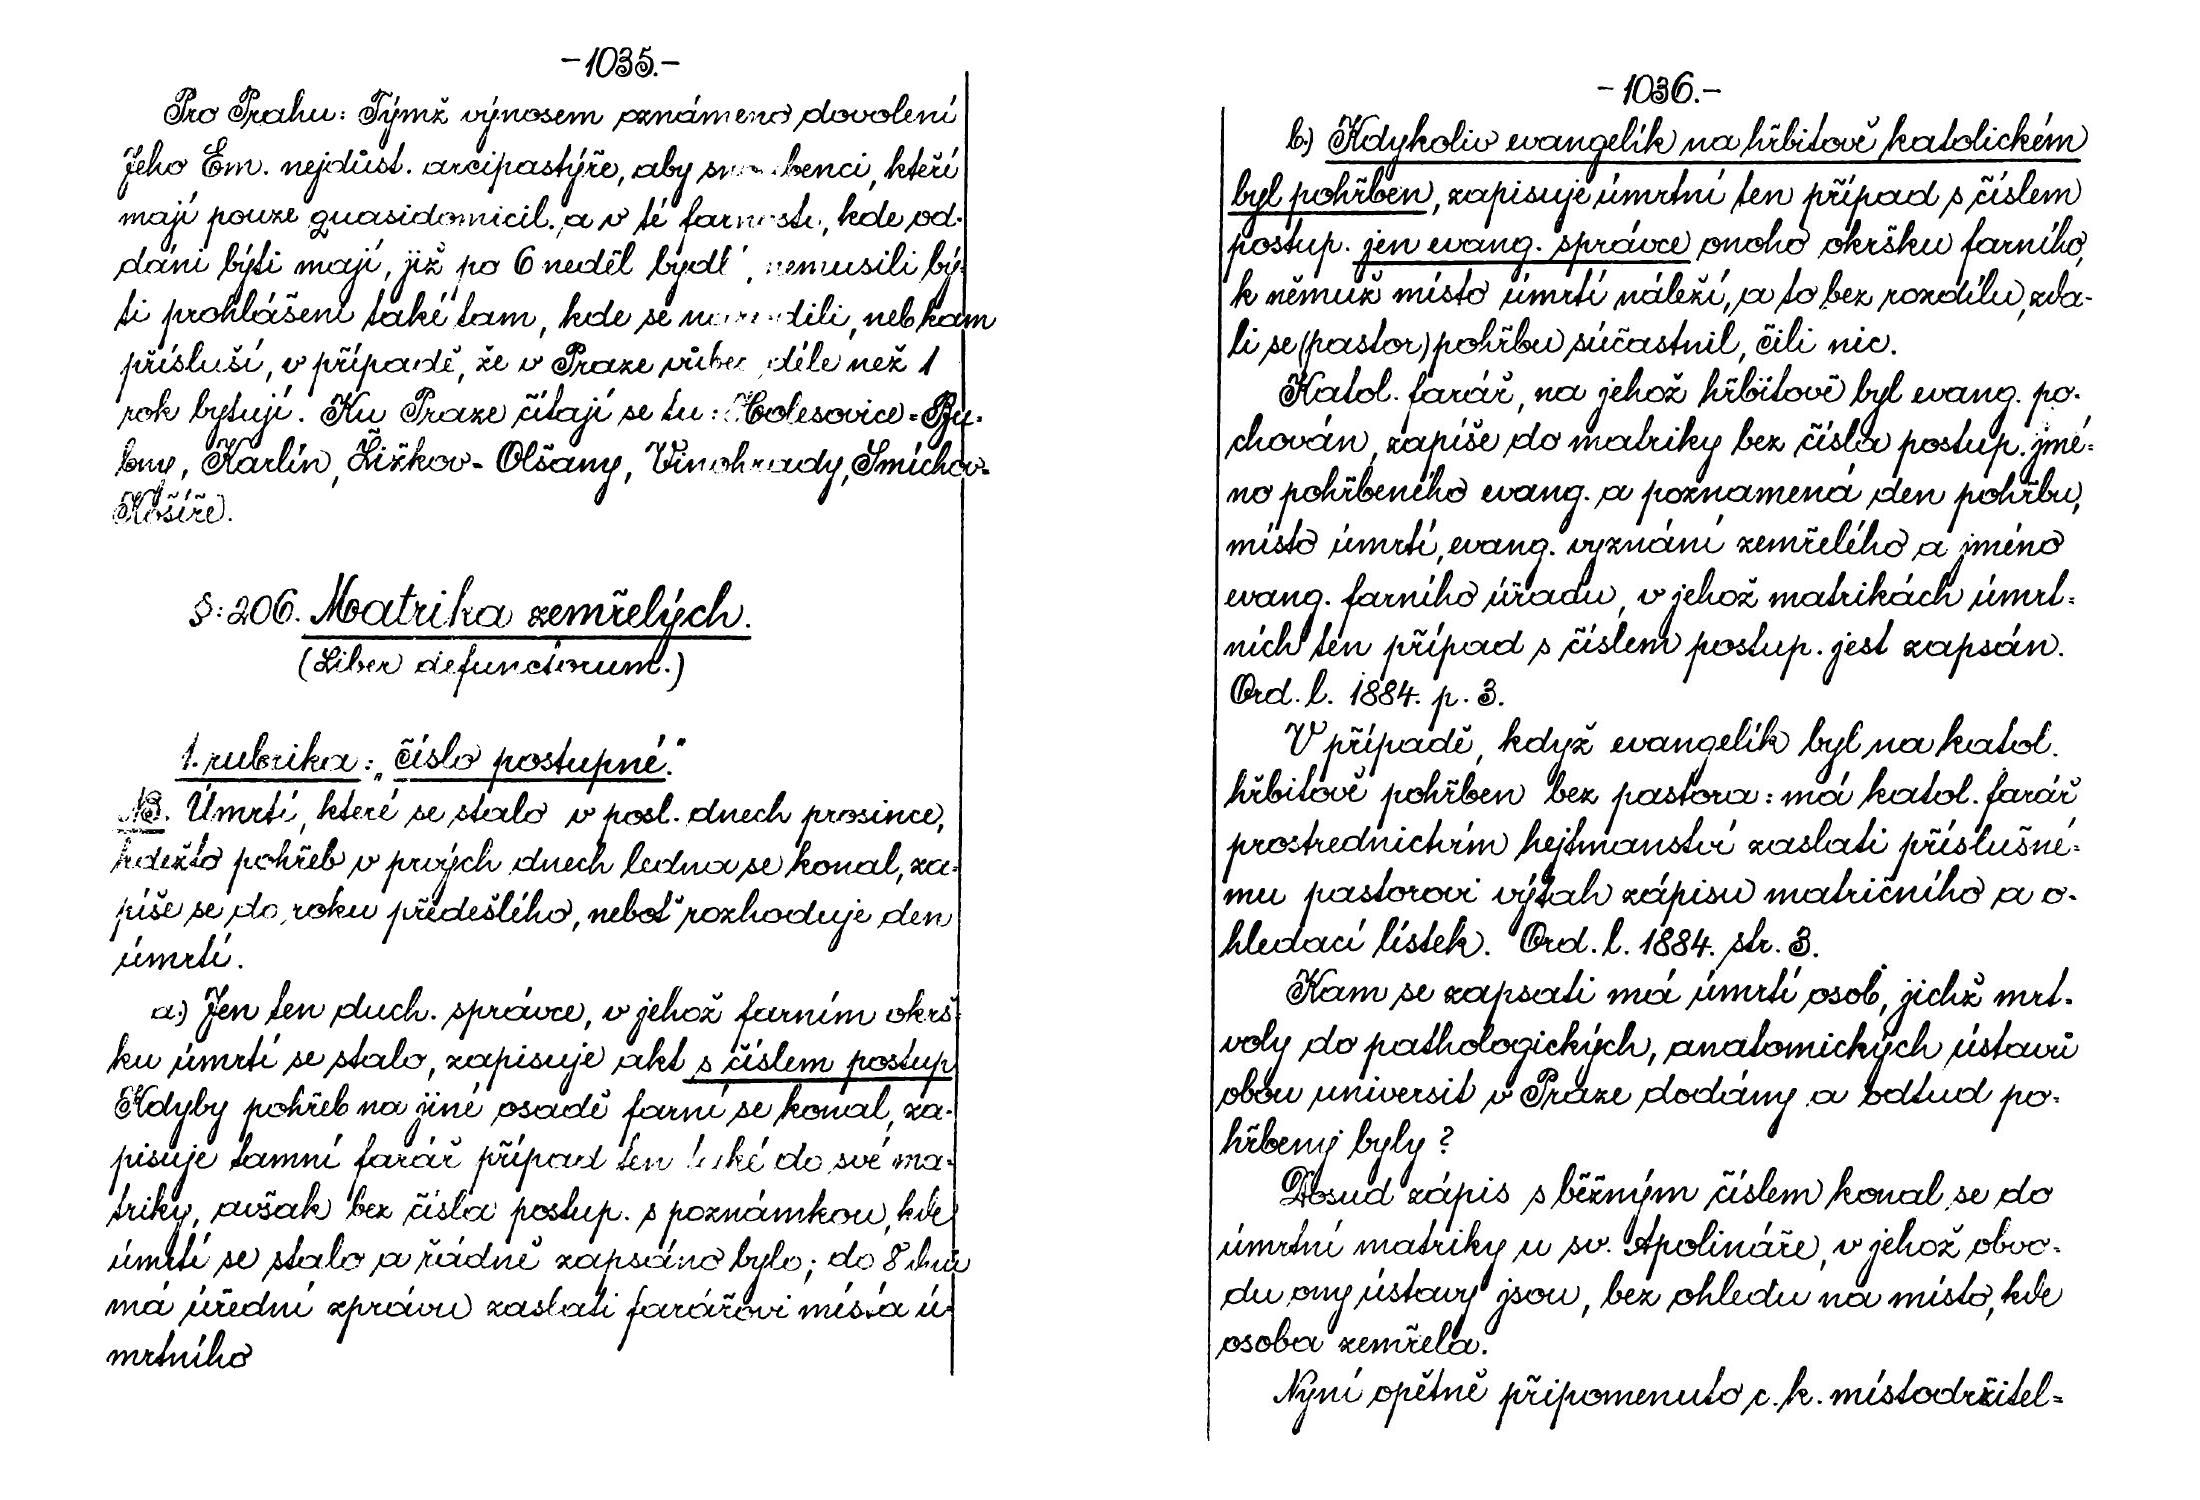 -1035.-
Pro Prahu: Týmž výnosem oznámeno dovolení
Jeho Em. nejdůst. arcipastýře, aby snoubenci, kteří
mají pouze quasidomicil. a v té farnosti, kde od-
dáni býti mají, již po 6 neděl bydlí, nemusili bý-
ti prohlášeni také tam, kde se narodili, neb kam
přísluší, v případě, že v Praze vůbec déle než 1
rok bytují. Ku Praze čítají se tu: Holešovice-Bu-
bny, Karlín, Žižkov-Olšany, Vinohrady, Smíchov-
Košíře.
§: 206. Matrika zemřelých.
(Liber defunctorum.)
1. rubrika: „číslo postupné."
NB. Úmrtí, které se stalo v posl. dnech prosince,
kdežto pohřeb v prvých dnech ledna se konal, za-
píše se do roku předešlého, neboť rozhoduje den
úmrtí.
a.) Jen ten duch. správce, v jehož farním okrš-
ku úmrtí se stalo, zapisuje akt s číslem postup
Kdyby pohřeb na jiné osadě farní se konal, za-
pisuje tamní farář případ ten také do své ma-
triky, avšak bez čísla postup. s poznámkou, kde
úmrtí se stalo a řádně zapsáno bylo; do 8 dnů
má úřední zprávu zaslati farářovi místa ú-
mrtního
-1036.-
b.) Kdykoliv evangelík na hřbitově katolickém
byl pohřben, zapisuje úmrtní ten případ s číslem
postup. jen evang. správce onoho okršku farního,
k němuž místo úmrtí náleží, a to bez rozdílu, zda-
li se (pastor) pohřbu súčastnil, čili nic.
Katol. farář, na jehož hřbitově byl evang. po-
chován, zapíše do matriky bez čísla postup. jmé-
no pohřbeného evang. a poznamená den pohřbu,
místo úmrtí, evang. vyznání zemřelého a jméno
evang. farního úřadu, v jehož matrikách úmrt-
ních ten případ s číslem postup. jest zapsán.
Ord. l. 1884. p. 3.
V případě, když evangelík byl na katol.
hřbitově pohřben bez pastora: má katol. farář
prostřednictvím hejtmanství zaslati příslušné-
mu pastorovi výtah zápisu matričního a o-
hledací lístek. Ord. l. 1884. str. 3.
Kam se zapsati má úmrtí osob, jichž mrt-
voly do pathologických, anatomických ústavů
obou universit v Praze dodány a odtud po-
hřbeny byly?
Dosud zápis s běžným číslem konal se do
úmrtní matriky u sv. Apolináře, v jehož obvo-
du ony ústavy jsou, bez ohledu na místo, kde
osoba zemřela.
Nyní opětně připomenuto c. k. místodržitel-